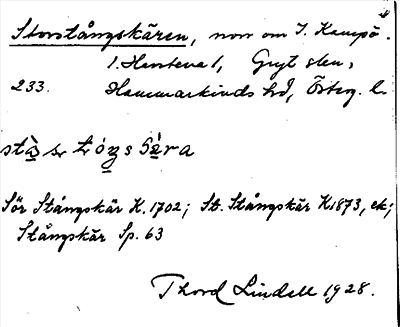 Storstångskären, norr om I. Kampö.
1. Hersteval, Gryt sn,
233. Hammarkinds hd, Österg. l.
Sör Stångskär K. 1702; St. Stångskär K 1873, ek;
Stångskär Sp. 63
Thord Lindell 1928.